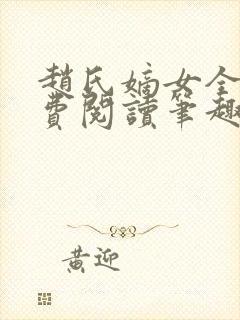 趙氏嫡女全
費閱讀筆趣
黃迎